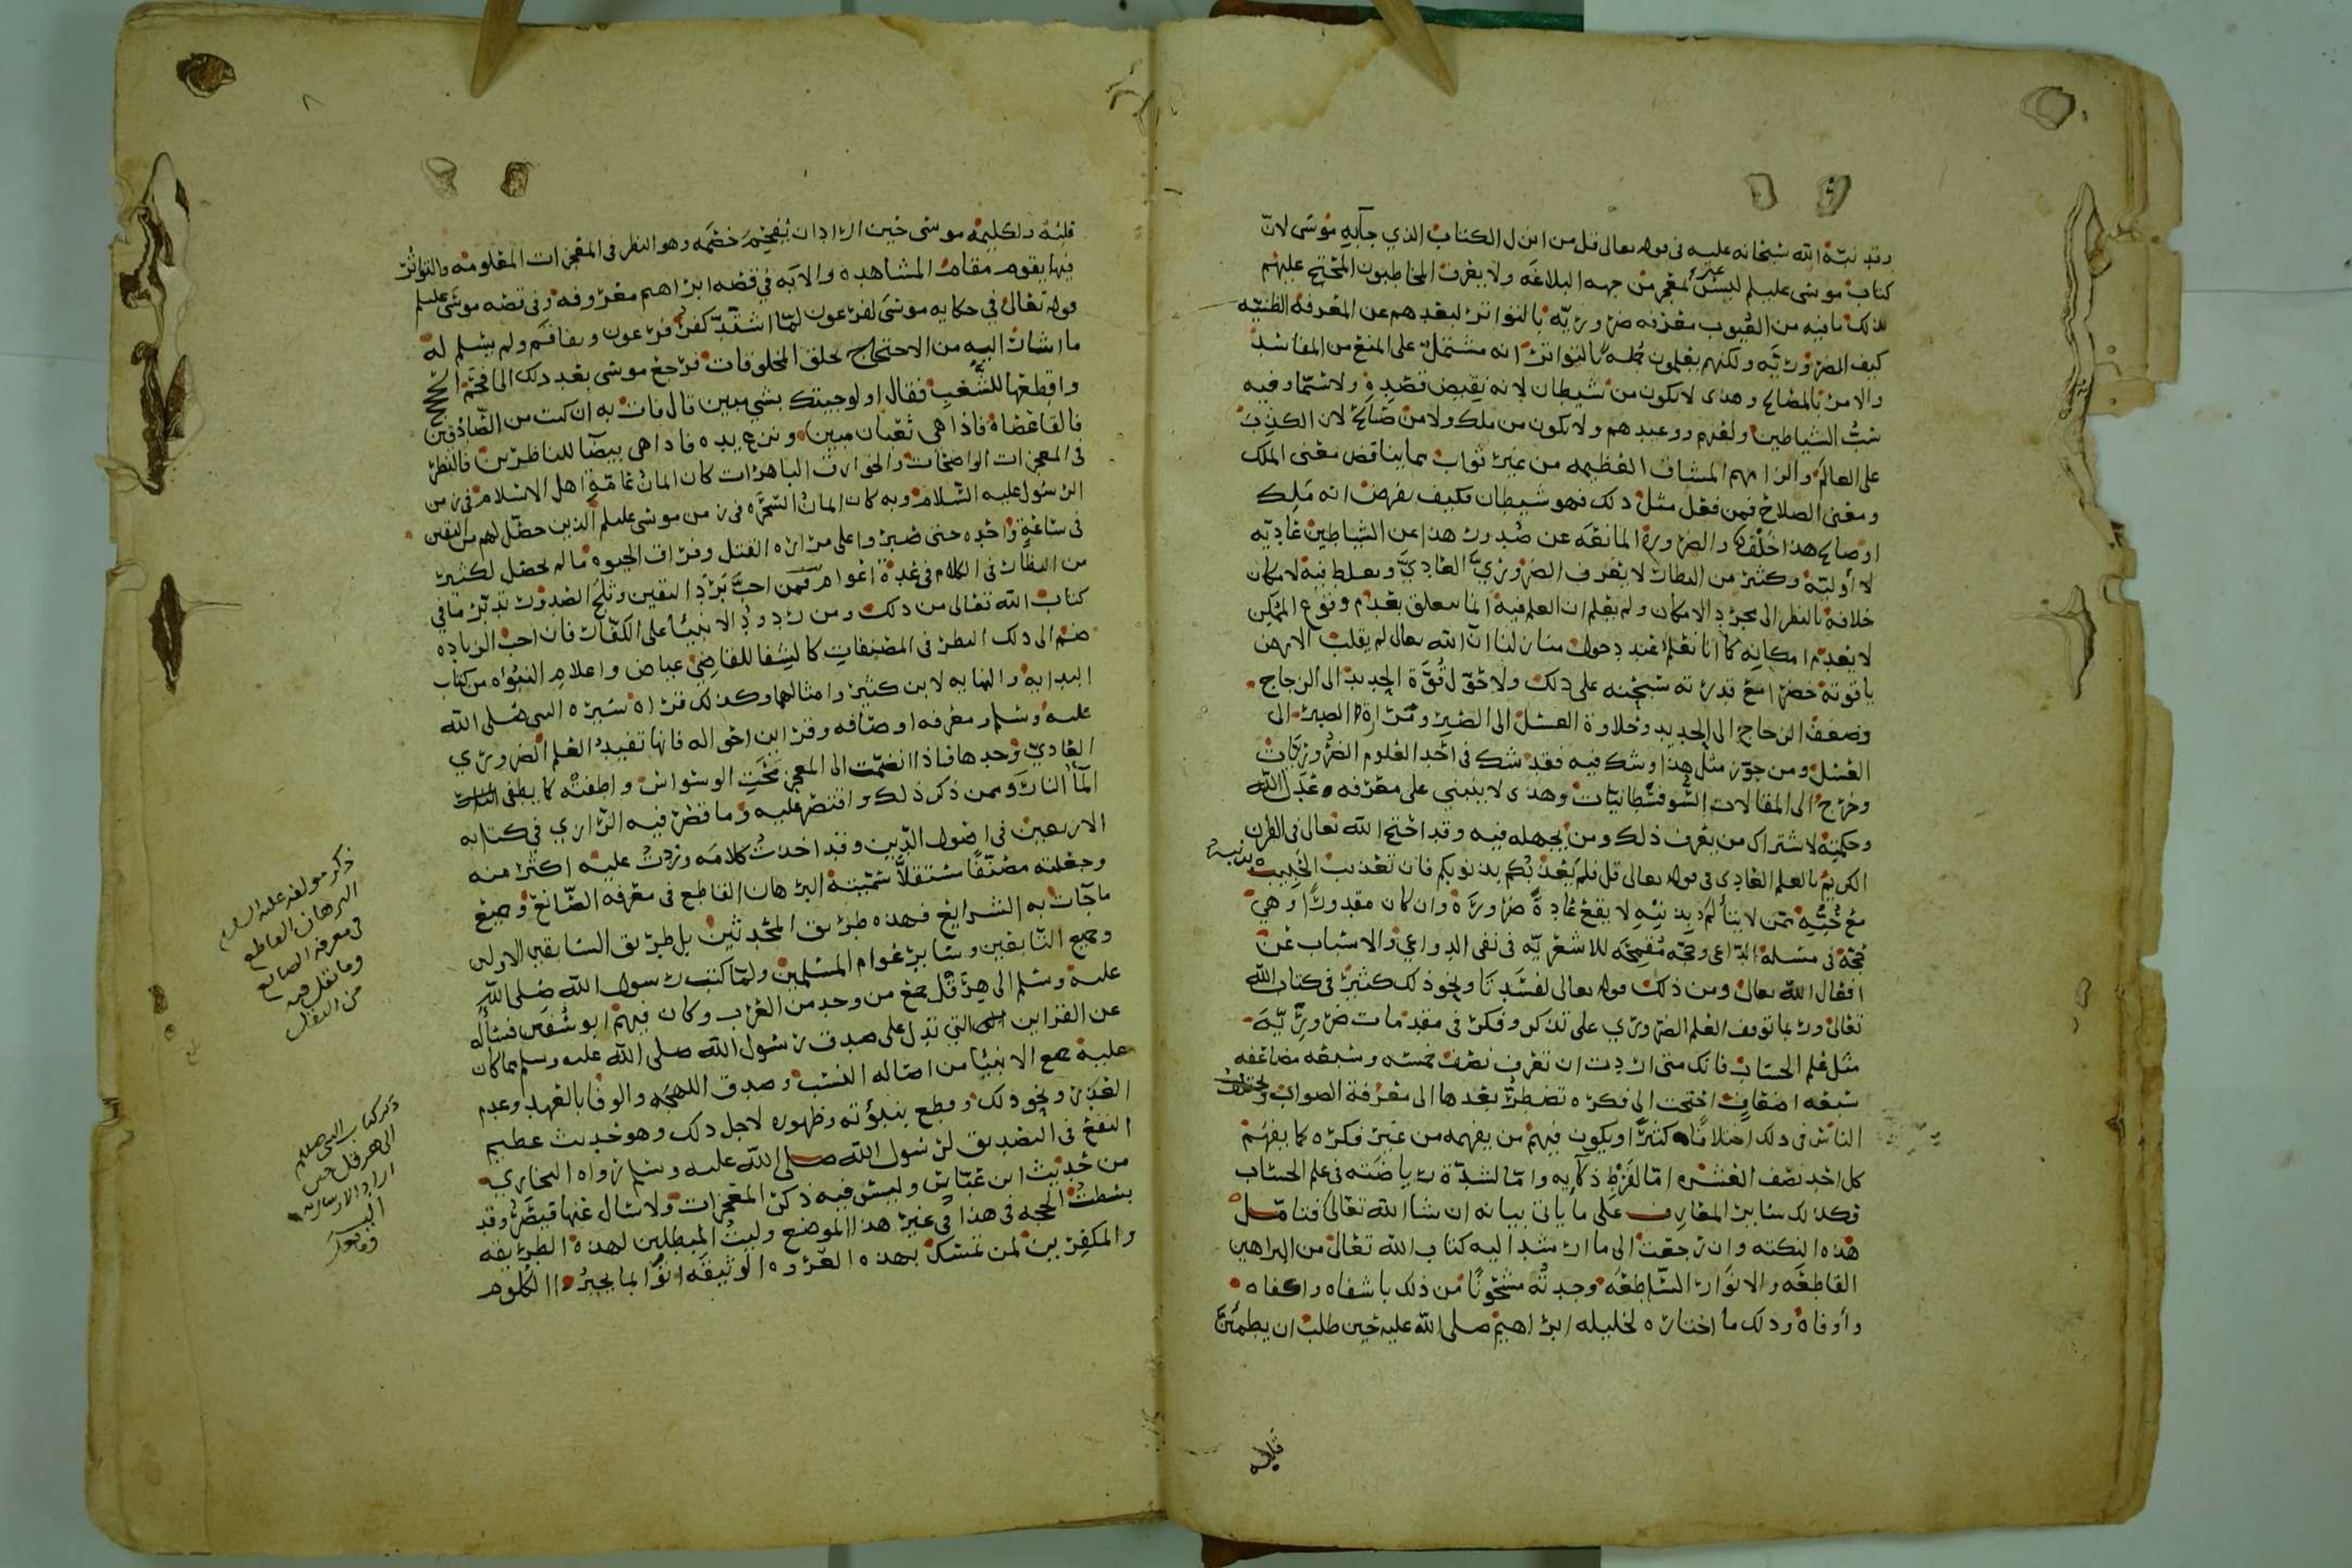 وقد نبّه الله سبحانه عليه في قوله تعالى قل من انزل الكتاب الذي جآ به موسى لانّ
كتاب موسى عليلم ليس بمعجز من جهه البلاغه ولا يعرف المخاطبون المحتج عليهم
بذلك ما فيه من الغيوب معرفه ضروريّه بالتواتر لبعدهم عن المعرفه الظنيّه
كيف الضروريّه ولكنهم يعلمون كلهم بالتواتر انه مشتمل على المنع من المفاسد
والامر بالمصالح وهذا لا يكون من شيطان لانه نقيض قصده ولا سيّما وفيه
سبّ الشياطين ولعنهم ووعيدهم ولا يكون من ملك ولا من صالح لان الكذب
على العالم والزامهم المشاق العظيمه من غير ثواب مما يناقض معنى الملك
ومعنى الصلاح فمن فعل مثل ذلك فهو شيطان فكيف يفرض انه ملك
او صالح هذا خلف والضرورة المانعه عن صدور هذا عن الشياطين عاديّه
لا أوليّة وكثير من النظار لا يعرف الضروريّ العاديّ ويغلط فيه لامكان
خلافه بالنظر الى مجرّد الامكان ولم يعلم ان العلم فيه انما يتعلق بعدم وقوع الممكن
لا بعدم امكانه كما انا نعلم عند دخول منازلنا انّ الله تعالى لم يقلب الارض
ياقوته خضرا مع قدرته سبحنه على ذلك ولا حوّل قوّة الحديد الى الزجاج
وضعف الزجاج الى الحديد وحلاوة العسل الى الصبر ومرارة الصبر الى
العسل ومن جوّز مثل هذا او شك فيه فقد شك في احد العلوم الضروريات
وخرج الى المقالات السوفسطانيات وهذا لا ينبني على معرفه عدل الله
وحكمته لاشتراك من يعرف ذلك ومن يجهله فيه وقد احتج الله تعالى في القران
الكريم بالعلم العادي في قوله تعالى قل فلم يعذبكم بذنوبكم فان تعذيب الحبيب
مع حبّه ممن لا يتألم بذنبه لا يقع عادةً ضرورة وان كان مقدورًا وهي
حجّة في مسئلة الدّاعي وحجّه مفحمه للاشعريّه في نفي الدواعي والاسباب عن
افعال الله تعالى ومن ذلك قوله تعالى لفسدتا ونحو ذلك كثير في كتاب الله
تعالى وربما توقف العلم الضروري على تذكر وفكر في مقدمات ضروريّة
مثل علم الحساب فانك متى اردت ان تعرف نصف خمسه وسبعه مضاعفه
سبعه اضعاف احتجت الى فكره تضطر بعدها الى معرفة الصواب ويختلف
الناس في ذلك اختلافا كثيرًا ويكون فيهم من يفهمه من غير فكره كما يفهم
كل احد نصف العشره امّا لفرط ذكآيه وامّا لشدّة رياضته في علم الحساب
فكذلك سائر المعارف على ما ياتي بيانه ان شا الله تعالى فتامّل
هذه النكته وان رجعت الى ما ارشد اليه كتاب الله تعالى من البراهين
القاطعه والانوار السّاطعه وجدته مشحونًا من ذلك باشفاه واكفاه
وأوفاه وذلك ما اختاره لخليله ابراهيم صلى الله عليه حين طلب ان يطمئنّ
قلبه
قلبه ولكليمه موسى حين اراد ان يفحم خصمه وهو النظر في المعجزات المعلومه والتواتر
فيها يقوم مقام المشاهده والايه في قصه ابراهيم معروفه وفي قصه موسى عليلم
قوله تعالى في حكايه موسى لفرعون لمّا اشتدّ كفر فرعون ونفاقه ولم يسلم له
ما اشار اليه من الاحتجاج بخلق المخلوقات فرجع موسى بعد ذلك الى افحم الحجج
واقطعها للشغب فقال اولو جيتك بشي مبين قال فات به ان كنت من الصّادقين
فالقا عصاه فاذا هي ثعبان مبين ونزع يده فاذا هي بيضآ للناظرين فالنظر
في المعجزات الواضحات والخوارق الباهرات كان ايمان عامّة اهل الاسلام في زمن
الرسول عليه السّلام وبه كان ايمان السّحره في زمن موسى عليلم الذين حصّل لهم من اليقين
في ساعةٍ واحده حتى صبروا على مراره القتل وفراق الحيوه ما لم يحصل لكثير
من النظار في الكلام في عدة اعوام فمن احبّ برد اليقين وثلج الصدور تدبّر ما في
كتاب الله تعالى من ذلك ومن ردود الانبيآ على الكفّار فان احب الزياده
ضم الى ذلك النظر في المصنفات كالشفا للقاضي عياض واعلام النبوّه من كتاب
البدايه والنهايه لابن كثير وامثالهما وكذلك قراه سيره النبي صلى الله
عليه وسلم ومعرفه اوصافه وقراين احواله فانها تفيد العلم الضروري
العادي وحدها فاذا انضمّت الى المعجز محت الوسواس واطفته كما يطفي
المآ النار وممن ذكر ذلك واقتصر عليه وما قصّر فيه الرّازي في كتابه
الاربعين في اصول الدّين وقد اخذت كلامه وزدت عليه اكثر منه
وجعلته مصنّفًا مستقلاًّ سمّيته البرهان القاطع في معرفة الصّانع وجميع
ما جآت به الشرايع فهذه طريق المحدثين بل طريق السابقين الاولين
وجميع التّابعين وساير عوام المسلمين ولمّا كتب رسول الله صلى الله
عليه وسلم الى هرقل جمع من وجد من العرب وكان فيهم ابو سفين فسأله
عن القراين التي تدل على صدق رسول الله صلى الله عليه وسلم مما كان
عليه جميع الانبيآ من اصاله النسب وصدق اللهجه والوفا بالعهد وعدم
الغدر ونحو ذلك وقطع بنبوّته وظهوره لاجل ذلك وهو حديث عظيم
النفع في التصديق لرسول الله صلى الله عليه وسلم رواه البخاري
من حديث ابن عبّاس وليس فيه ذكر المعجزات ولا سال عنها قيصر وقد
بسطت الحجه في هذا في غير هذا الموضع وليت المبطلين لهذه الطريقه
والمكفرين لمن تمسّك بهذه العروه الوثيقه اتوا بما يجبر الكلوم
ذكر مولفه عليه السلام
البرهان القاطع
في معرفه الصانع
وما نقل فيه
من النقل
ذكر كتاب النبي صللم
الى هرقل حين